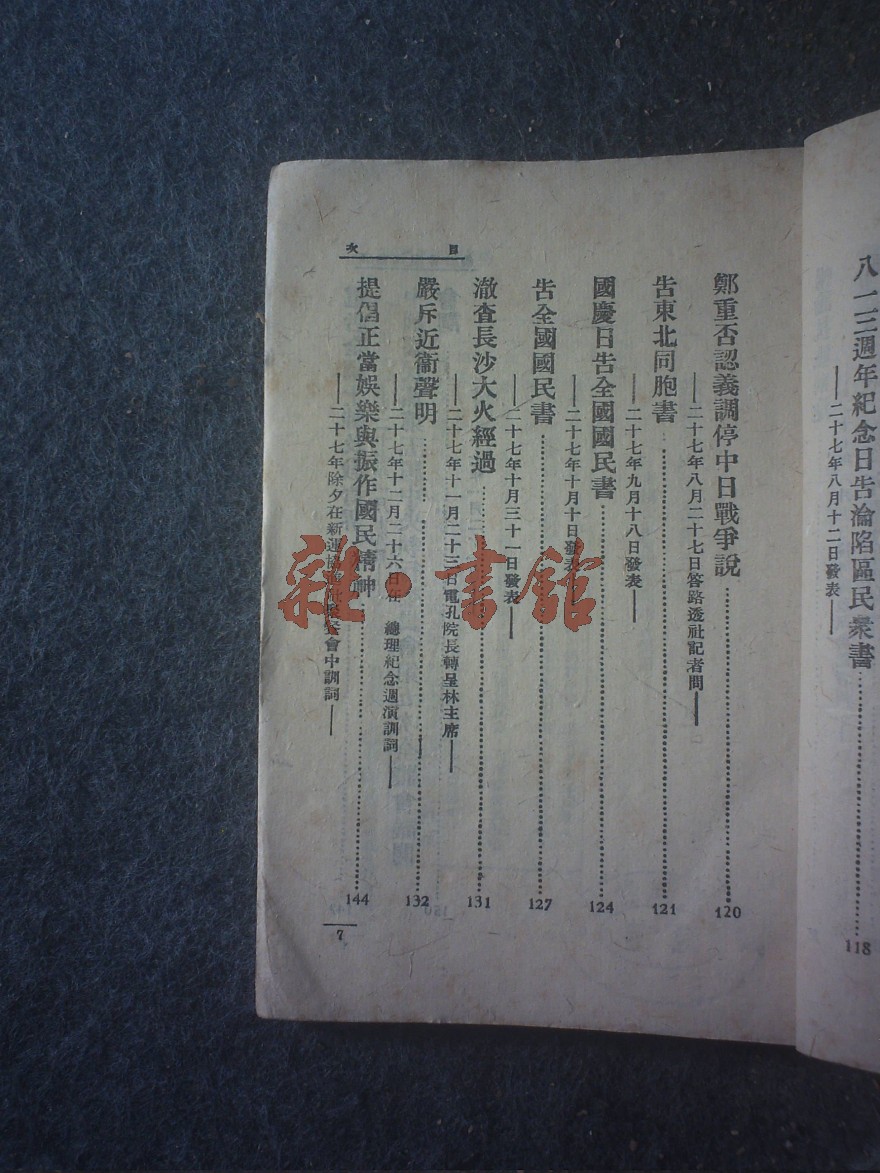 八一三週年紀念日告淪陷區民衆書……118
——二十七年八月十二日發表——
目次
鄭重否認義調停中日戰爭說……120
——二十七年八月二十七日答路透社記者問——
告東北同胞書……121
——二十七年九月十八日發表——
國慶日告全國國民書……124
——二十七年十月十日發表——
告全國國民書……127
——二十七年十月三十一日發表——
澈查長沙大火經過……131
——二十七年十一月二十三日電孔院長轉呈林主席——
嚴斥近衞聲明……132
——二十七年十二月二十六日在 總理紀念週演訓詞——
提倡正當娛樂與振作國民精神……144
——二十七年除夕在新運會中訓詞——
7
雜·書館